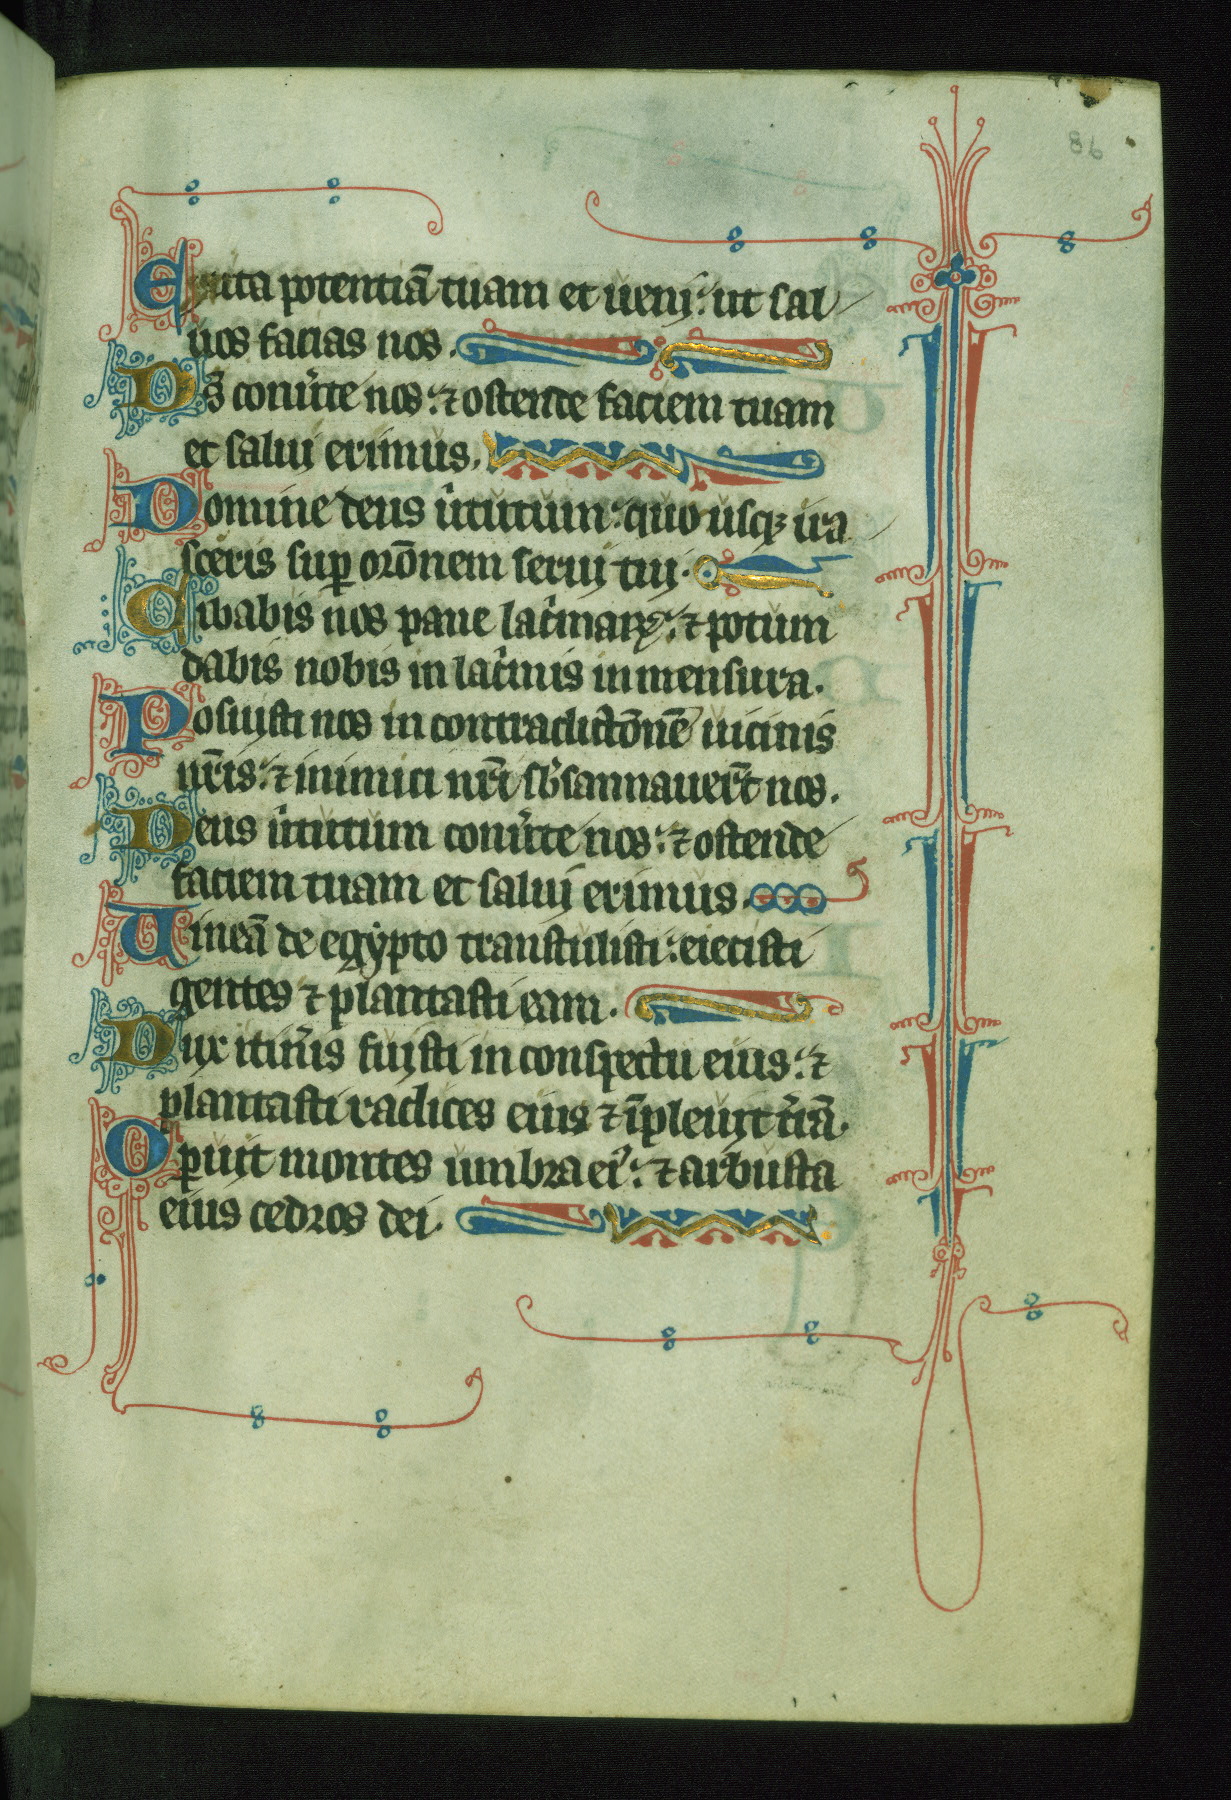 86
Excita potentiā tuam et ueni: ut sal
uos facias nos.
Ds̄ conu̾te nos: ⁊ ostende faciem tuam
et salui erimus.
Domine deus u̾tutum: quo usqꝫ ira
sceris sup̱ orōnem serui tui.
Cibabis nos pane lac̾maꝝ: ⁊ potum
dabis nobis in lac̾mis in mensura.
Posuisti nos in contradictōnē uicinis
nr̄is: ⁊ inimici nr̄i sb̾sannauer̄t nos.
Deus u̾tutum conu̾te nos: ⁊ ostende
faciem tuam et salui erimus.
Uineā de egypto transtulisti: eiecisti
gentes ⁊ plantasti eam.
Dux itin̾is fuisti in conspectu eius: ⁊
plantasti radices eius ⁊ īpleuit t̾rā.
Op̱uit montes umbra ei᷒: ⁊ arbusta
eius cedros dei.